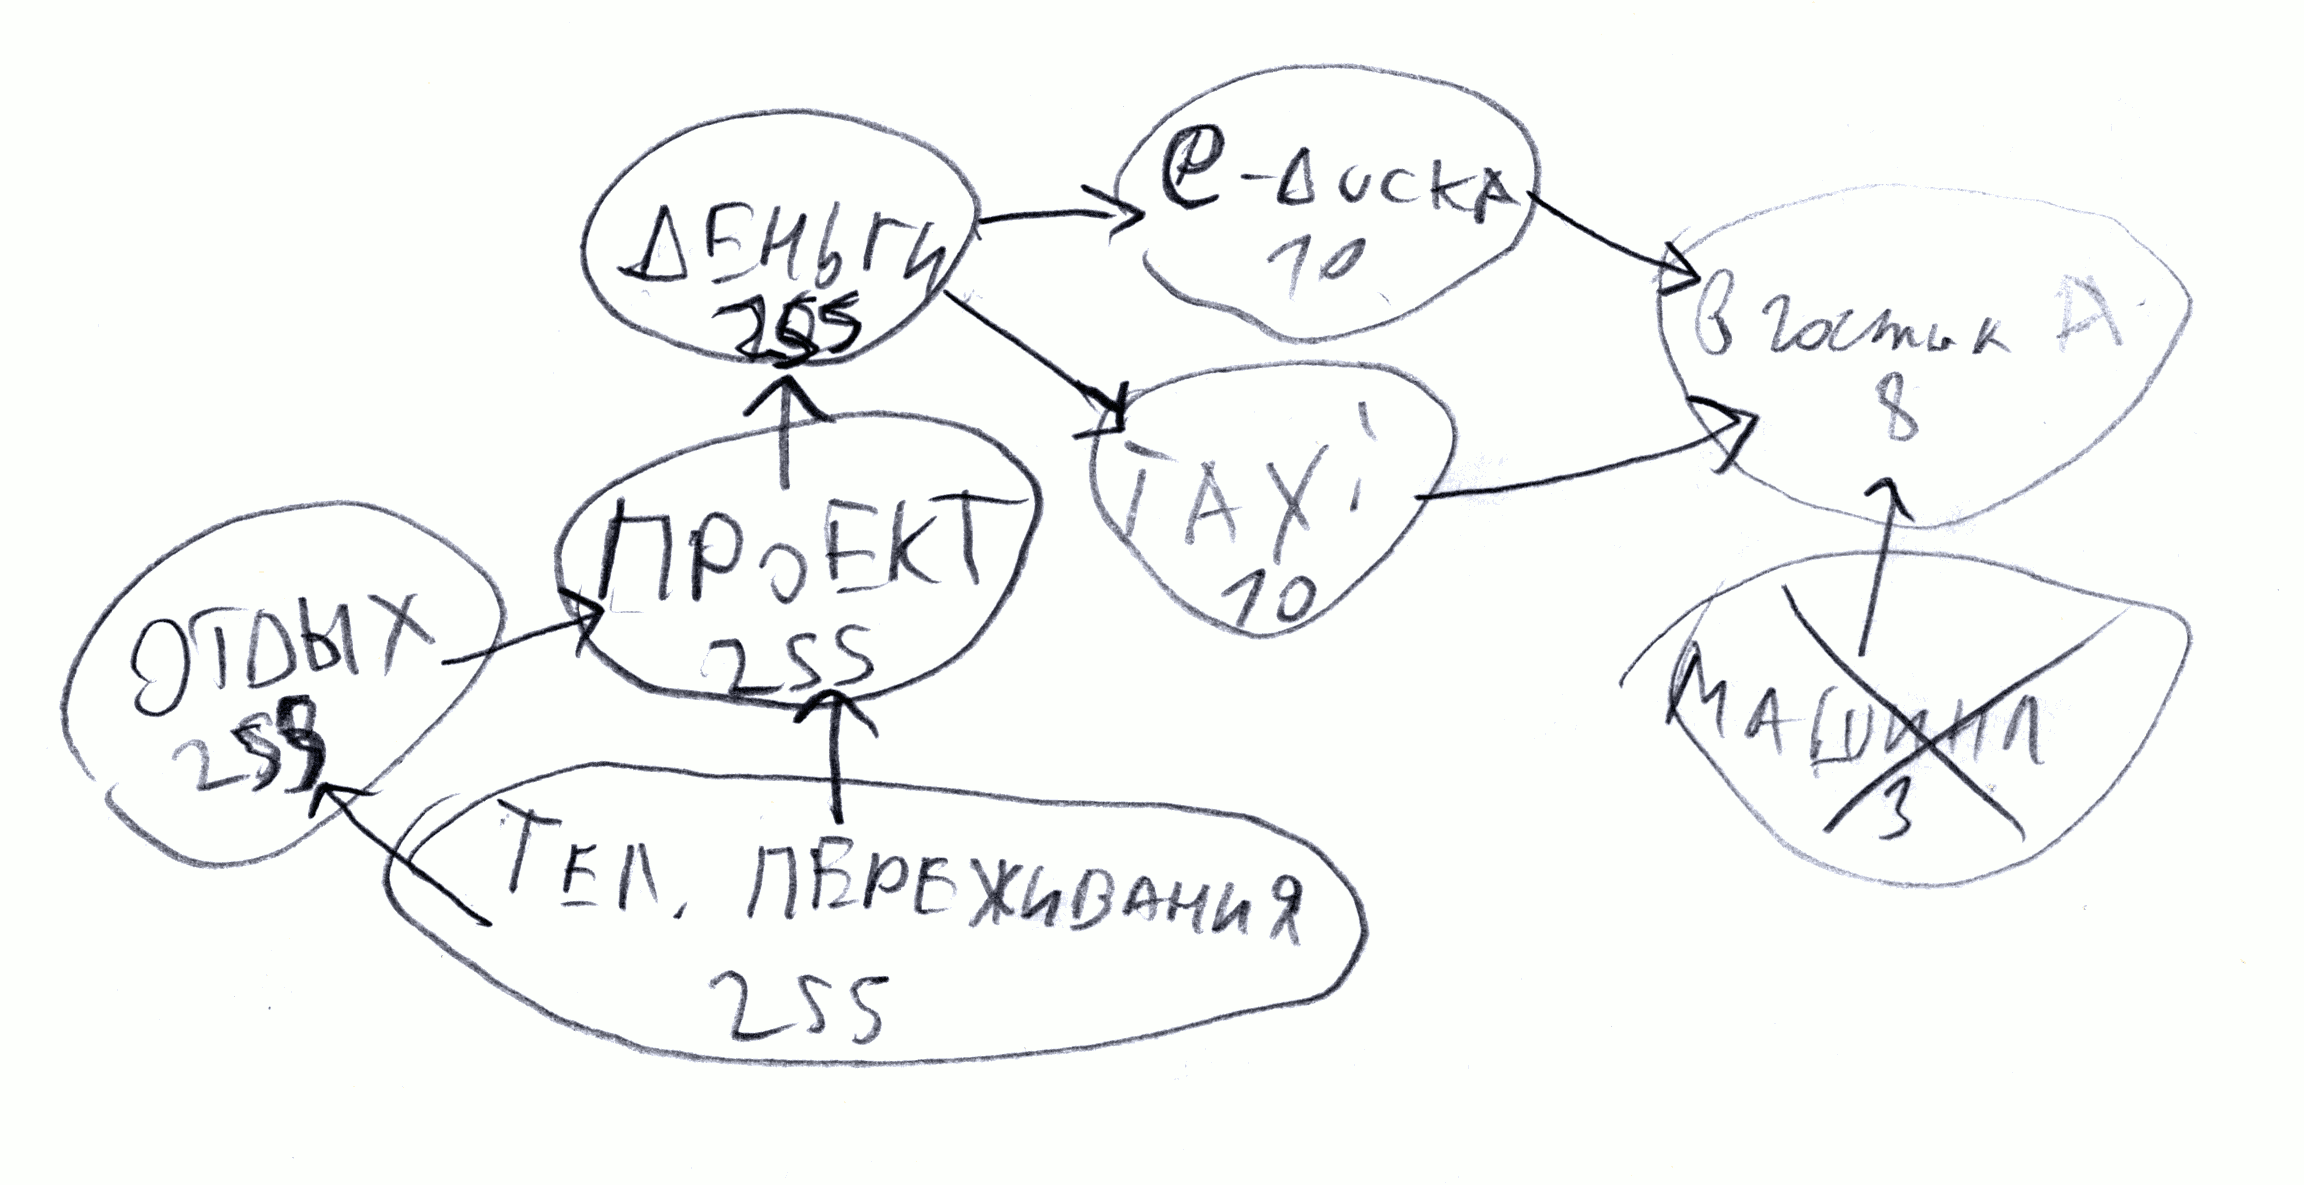 ДЕНЬГИ
255
е-диска
10
В гости к А.
8
TAXi
10
ПРОЕКТ
255
ОТДЫХ
255
МАШИНА
3
ТЕЛ. ПЕРЕЖИВАНИЯ
255